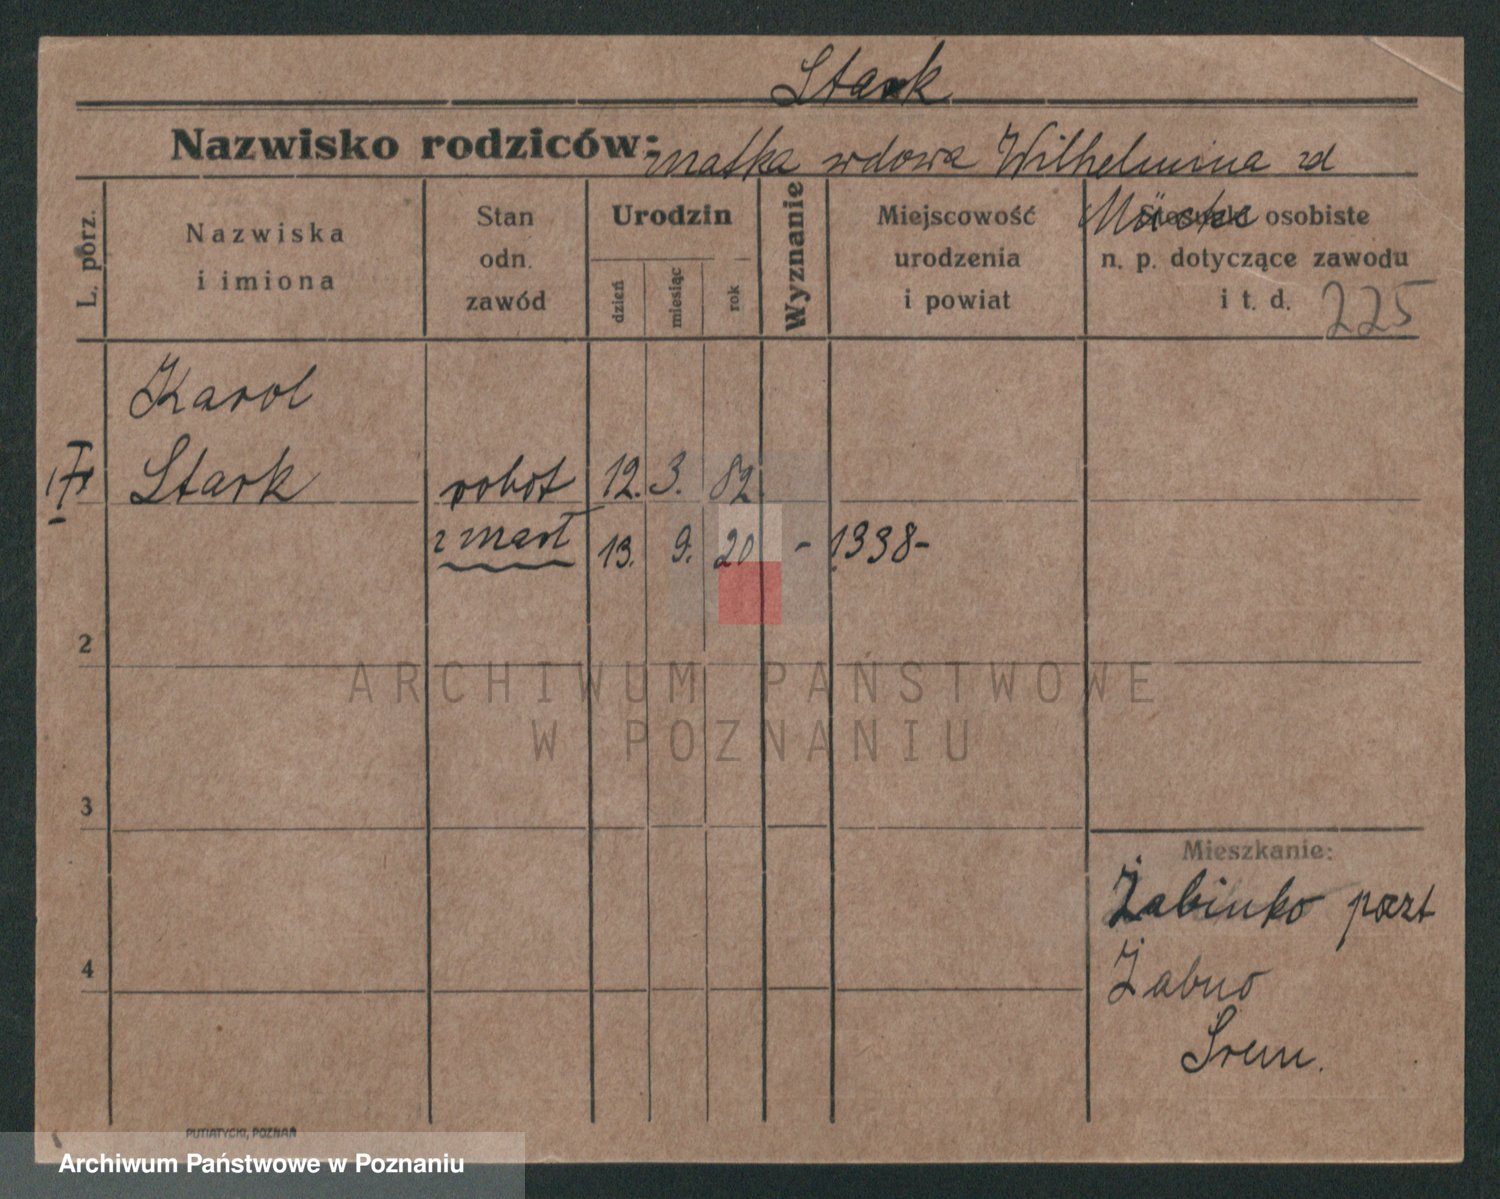 Stark
Nazwisko rodziców: matka wdowa Wilhelmina zd
L. porz.
Nazwiska
i imiona
Stan
odn.
zawód
Urodzin
dzień
miesiąc
rok
Wyznanie
Miejscowość
urodzenia
i powiat
Stosunki osobiste
n. p. dotyczące zawodu
i t. d.
225
Karol
Stark robot 12. 3. 82
zmarł 13. 9. 20 - 1338-
2
3
4
Mieszkanie:
Żabinko poczt
Żabno
Śrem.
PUTIATYCKI, POZNAŃ
ARCHIWUM PAŃSTWOWE
W POZNANIU
Archiwum Państwowe w Poznaniu